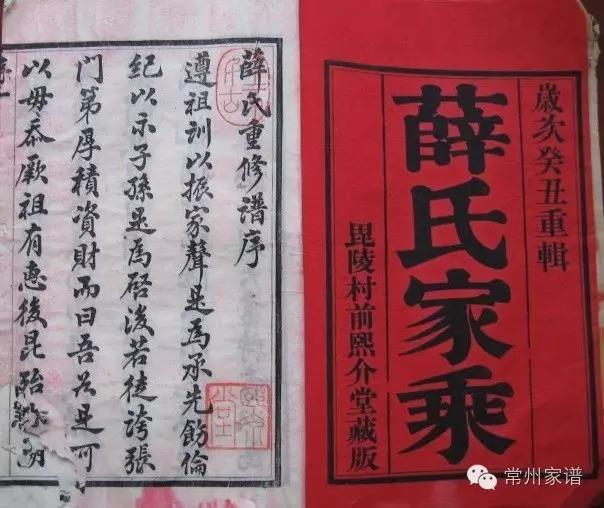 歲次癸丑重輯
薛氏家乘
毘陵村前熙介堂藏版
薛氏重修譜序
遵祖訓以振家聲是為承先飭倫
紀以示子孫是為啓後若徒誇張
門第厚積資財而曰吾於是可
以毋忝厥祖有惠後昆貽
序一
常州家谱